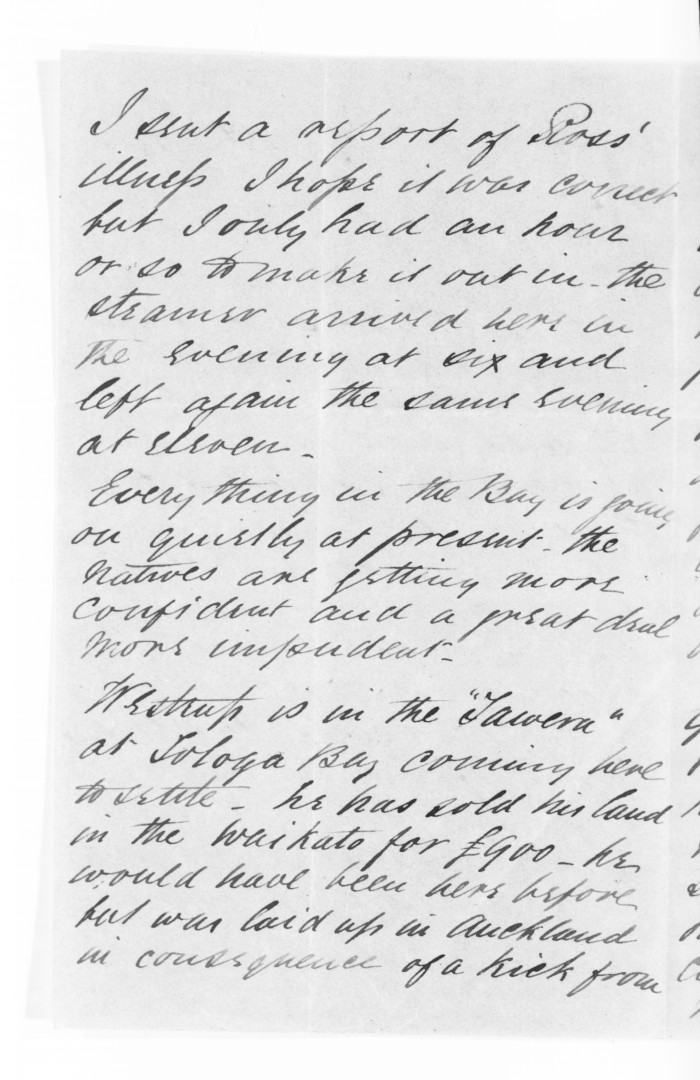 I sent a report of Ross'
illness I hope it was correct
but I only had an hour
or so to make it out in - the
steamer arrived here in
the evening at six and
left again the same evening
at eleven -
Everything in the Bay is going
on quietly at present - the
natives are getting more
confident and a great deal
more impudent -
Westrup is in the "Tawera"
at Tologa Bay coming here
to settle - he has sold his land
in the Waikato for £900 - he
would have been here before
but was laid up in Auckland
in consequence of a kick from